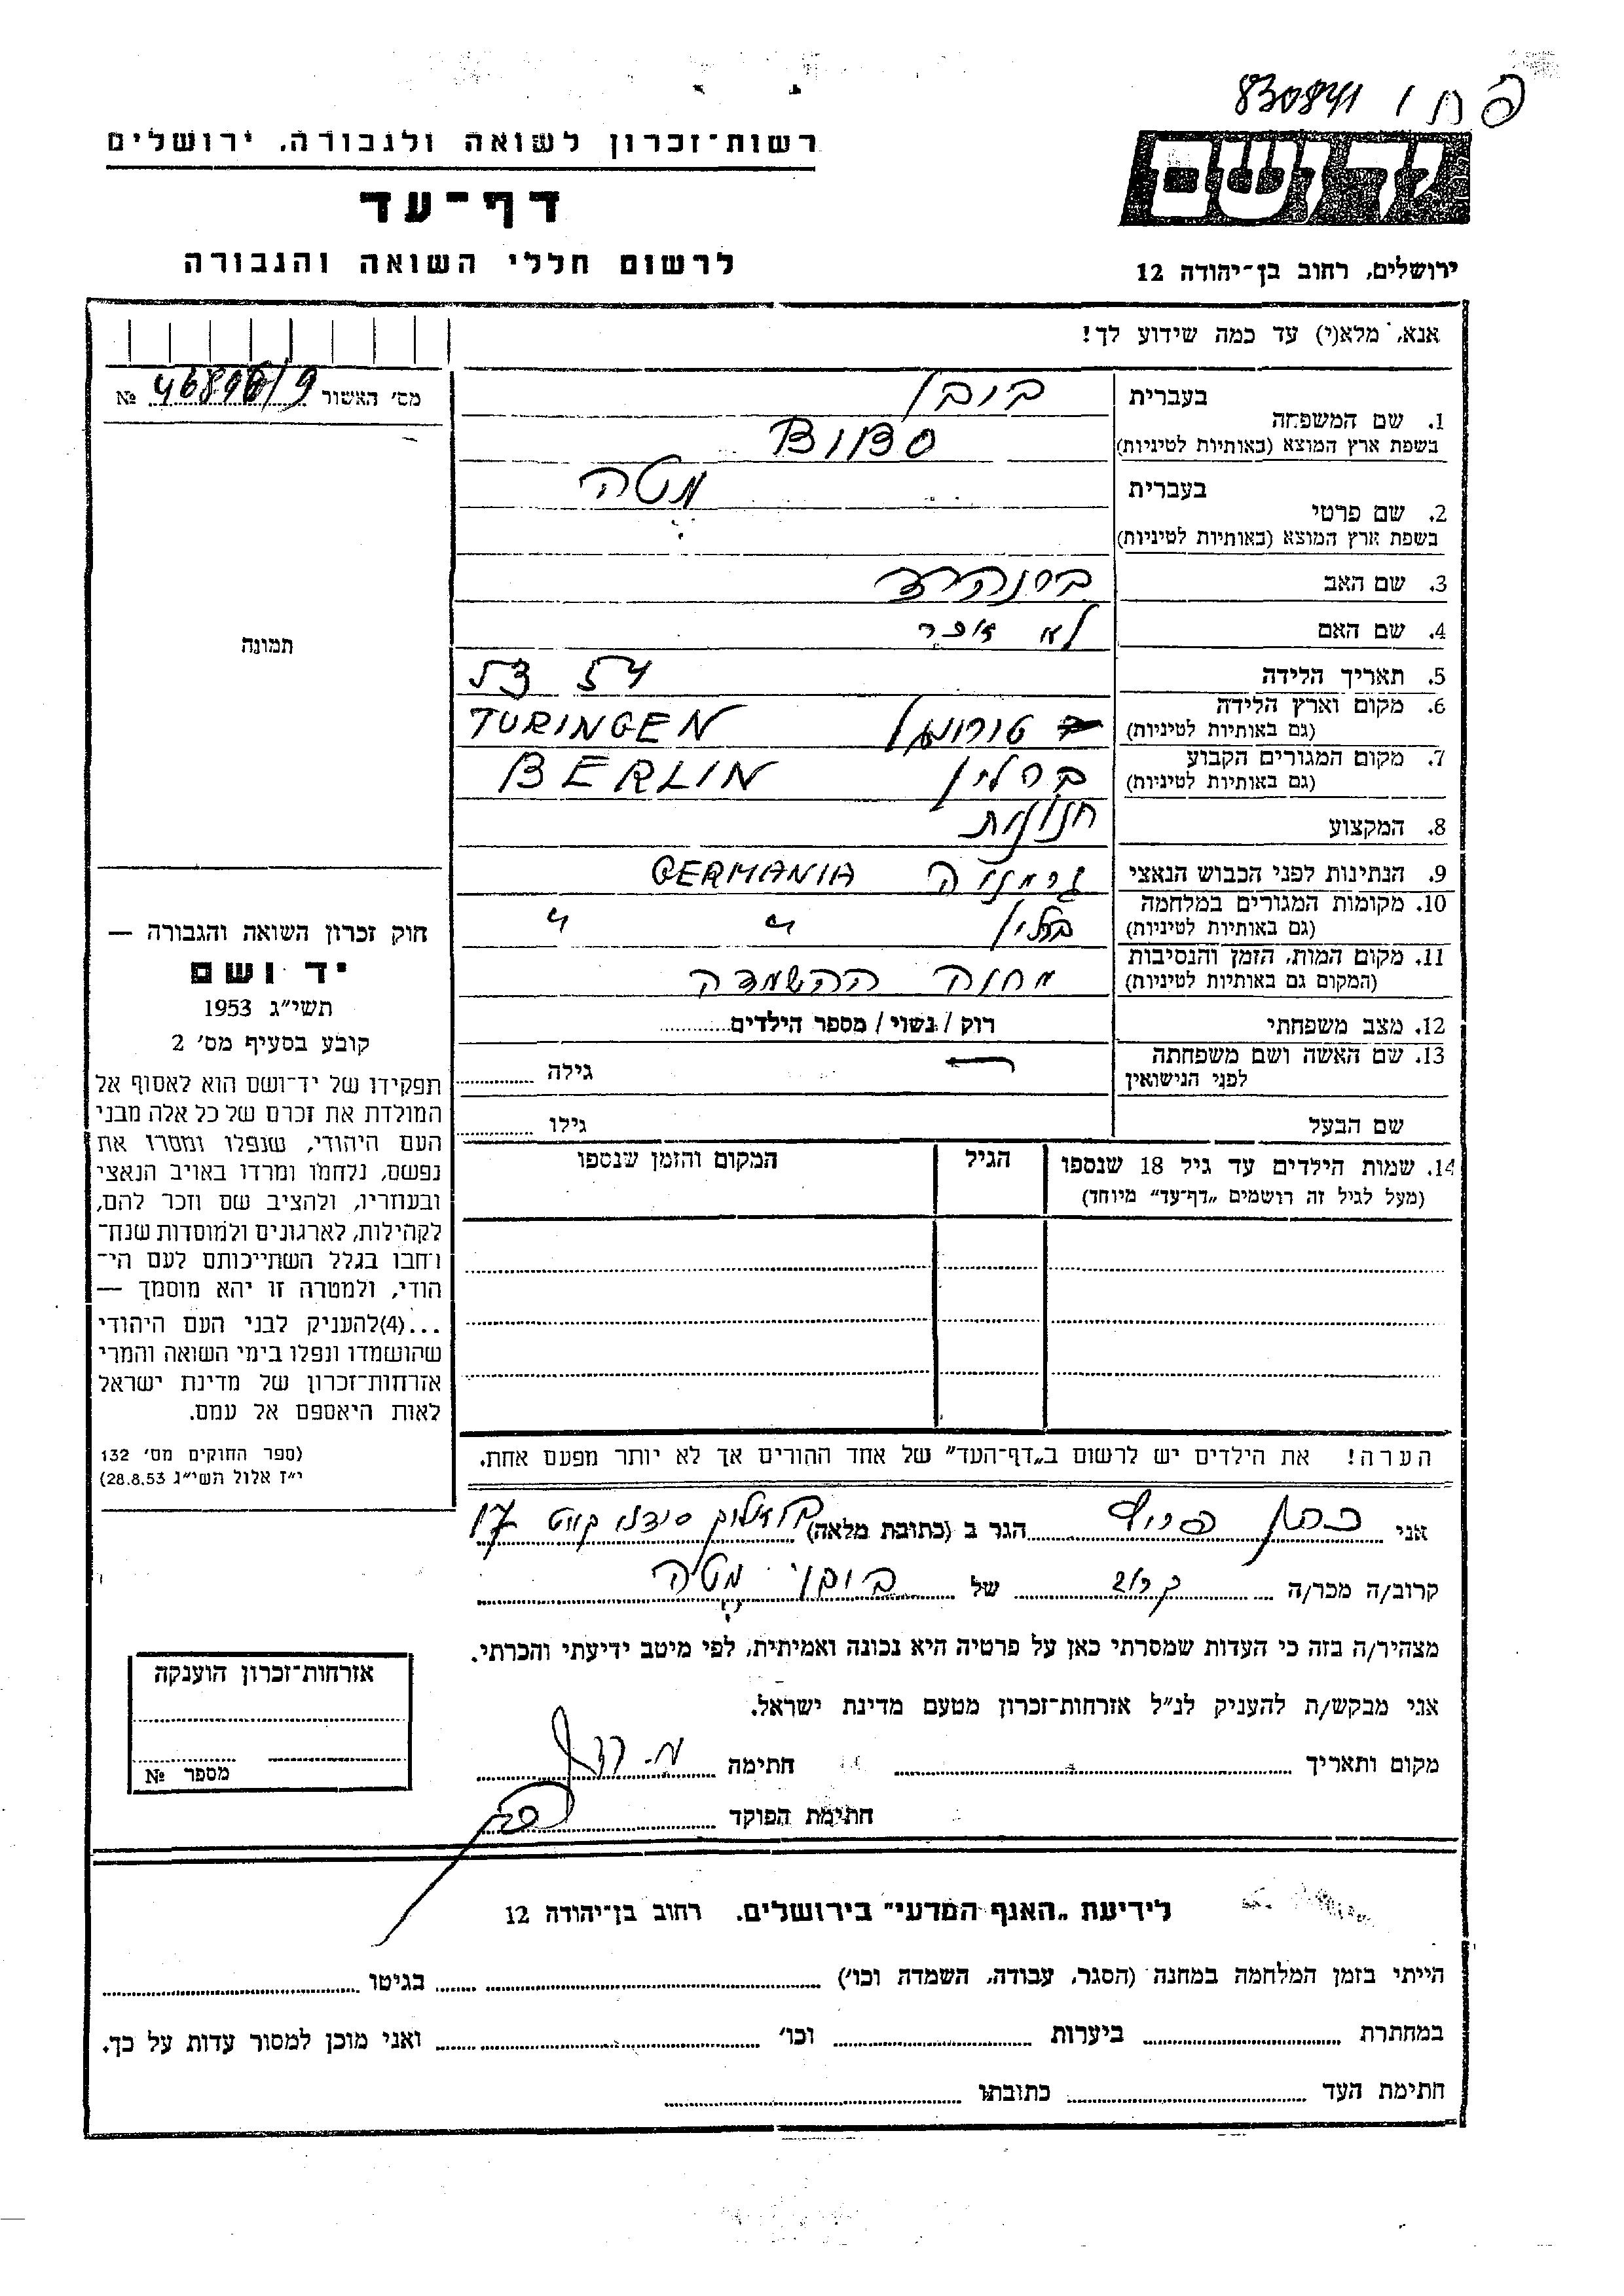 830841
רשות-זכרון לשואה ולגבורה, ירושלים
דף-עד
לרשום חללי השואה והגבורה
יד ושם
ירושלים, רחוב בן-יהודה 12
אנא, מלא(י) עד כמה שידוע לך!
מס׳ האשור №
1. שם המשפחה
בעברית
בשפת ארץ המוצא (באותיות לטיניות)
2. שם פרטי
בעברית מטה
בשפת ארץ המוצא (באותיות לטיניות)
3. שם האב ברנהרד
4. שם האם לא זוכר
5. תאריך הלידה
6. מקום וארץ הלידה
(גם באותיות לטיניות) TURINGEN
7. מקום המגורים הקבוע
(גם באותיות לטיניות) ברלין BERLIN
8. המקצוע
9. הנתינות לפני הכבוש הנאצי גרמניה GERMANIA
10. מקומות המגורים במלחמה
(גם באותיות לטיניות) ברלין " "
11. מקום המות, הזמן והנסיבות
(המקום גם באותיות לטיניות) מחנה ההשמדה
12. מצב משפחתי רוק / נשוי / מספר הילדים
13. שם האשה ושם משפחתה
לפני הנישואין גילה
שם הבעל גילו
14. שמות הילדים עד גיל 18 שנספו
(מעל לגיל זה רושמים „דף-עד" מיוחד)
הגיל
המקום והזמן שנספו
הערה! את הילדים יש לרשום ב„דף-העד" של אחד ההורים אך לא יותר מפעם אחת.
תמונה
חוק זכרון השואה והגבורה —
יד ושם
תשי״ג 1953
קובע בסעיף מס׳ 2
תפקידו של יד-ושם הוא לאסוף אל
המולדת את זכרם של כל אלה מבני
העם היהודי, שנפלו ומסרו את
נפשם, נלחמו ומרדו באויב הנאצי
ובעוזריו, ולהציב שם וזכר להם,
לקהילות, לארגונים ולמוסדות שנח-
רחבו בגלל השתייכותם לעם הי-
הודי, ולמטרה זו יהא מוסמך —
...(4)להעניק לבני העם היהודי
שהושמדו ונפלו בימי השואה והמרי
אזרחות-זכרון של מדינת ישראל
לאות היאספם אל עמם.
(ספר החוקים מס׳ 132
י״ז אלול תשי״ג 28.8.53)
אני הגר ב (כתובת מלאה)
קרוב/ה מכר/ה של מטה
מצהיר/ה בזה כי העדות שמסרתי כאן על פרטיה היא נכונה ואמיתית, לפי מיטב ידיעתי והכרתי.
אני מבקש/ת להעניק לנ״ל אזרחות-זכרון מטעם מדינת ישראל.
מקום ותאריך חתימה
חתימת הפוקד
אזרחות-זכרון הוענקה
מספר №
לידיעת „האגף המדעי" בירושלים, רחוב בן-יהודה 12
הייתי בזמן המלחמה במחנה (הסגר, עבודה, השמדה וכו׳) בגיטו
במחתרת ביערות וכו׳ ואני מוכן למסור עדות על כך.
חתימת העד כתובתו